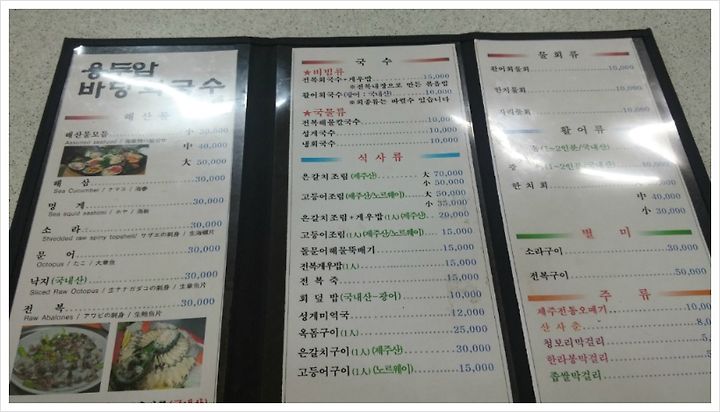 용두암
바당회국수
해산물
해산물모듬 小 30,000
Assorted seafood
中 40,000
大 50,000
해 삼 30,000
Sea Cucumber / ナマコ / 海参
멍 게 30,000
Sea squid sashimi / ホヤ / 海鞘
소 라 30,000
Shredded raw spiny topshell / サザエの刺身 / 生海螺片
문 어 30,000
Octopus / たこ / 大章鱼
낙지(국내산) 30,000
Sliced Raw Octopus / 生テナガダコの刺身 / 生章鱼片
전 복 30,000
Raw Abalones / アワビの刺身 / 生鲍鱼片
국 수
★비빔류
전복회국수+게우밥 15,000
※전복내장으로 만든 볶음밥
활어회국수(광어 : 국내산) 10,000
※회종류는 바뀔수 있습니다
★국물류
전복해물칼국수 10,000
성게국수 10,000
냉회국수 10,000
식 사 류
은갈치조림(제주산) 大 70,000
小 50,000
고등어조림(제주산/노르웨이) 大 50,000
小 35,000
은갈치조림+게우밥(1人)(제주산) 20,000
고등어조림(1人)(제주산/노르웨이) 15,000
돌문어해물뚝배기 15,000
전복게우밥(1人) 15,000
전 복 죽 15,000
회 덮 밥(국내산-광어) 10,000
성게미역국 12,000
옥돔구이(1人) 25,000
은갈치구이(1人)(제주산) 30,000
고등어구이(1人)(노르웨이) 15,000
물회류
활어회물회 10,000
한치물회 10,000
자리물회 10,000
활 어 류
(1~2인분/국내산)
(1~2인분/국내산)
한 치 회
中 40,000
小 30,000
별 미
소라구이 30,000
전복구이 50,000
주 류
제주전통오메기 10,000
산 사 춘
청보리막걸리
한라봉막걸리
좁쌀막걸리